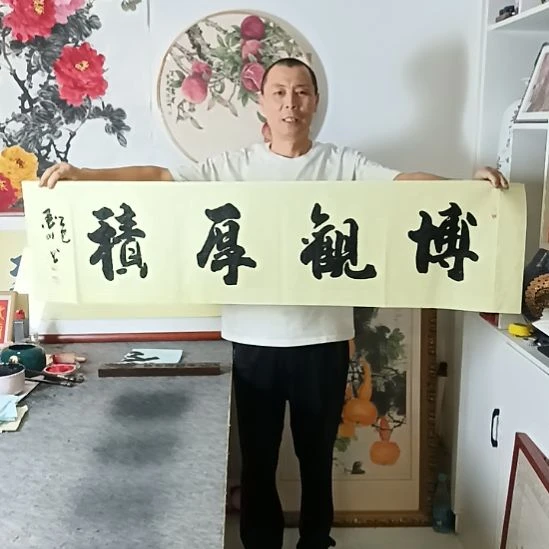 博觀厚積